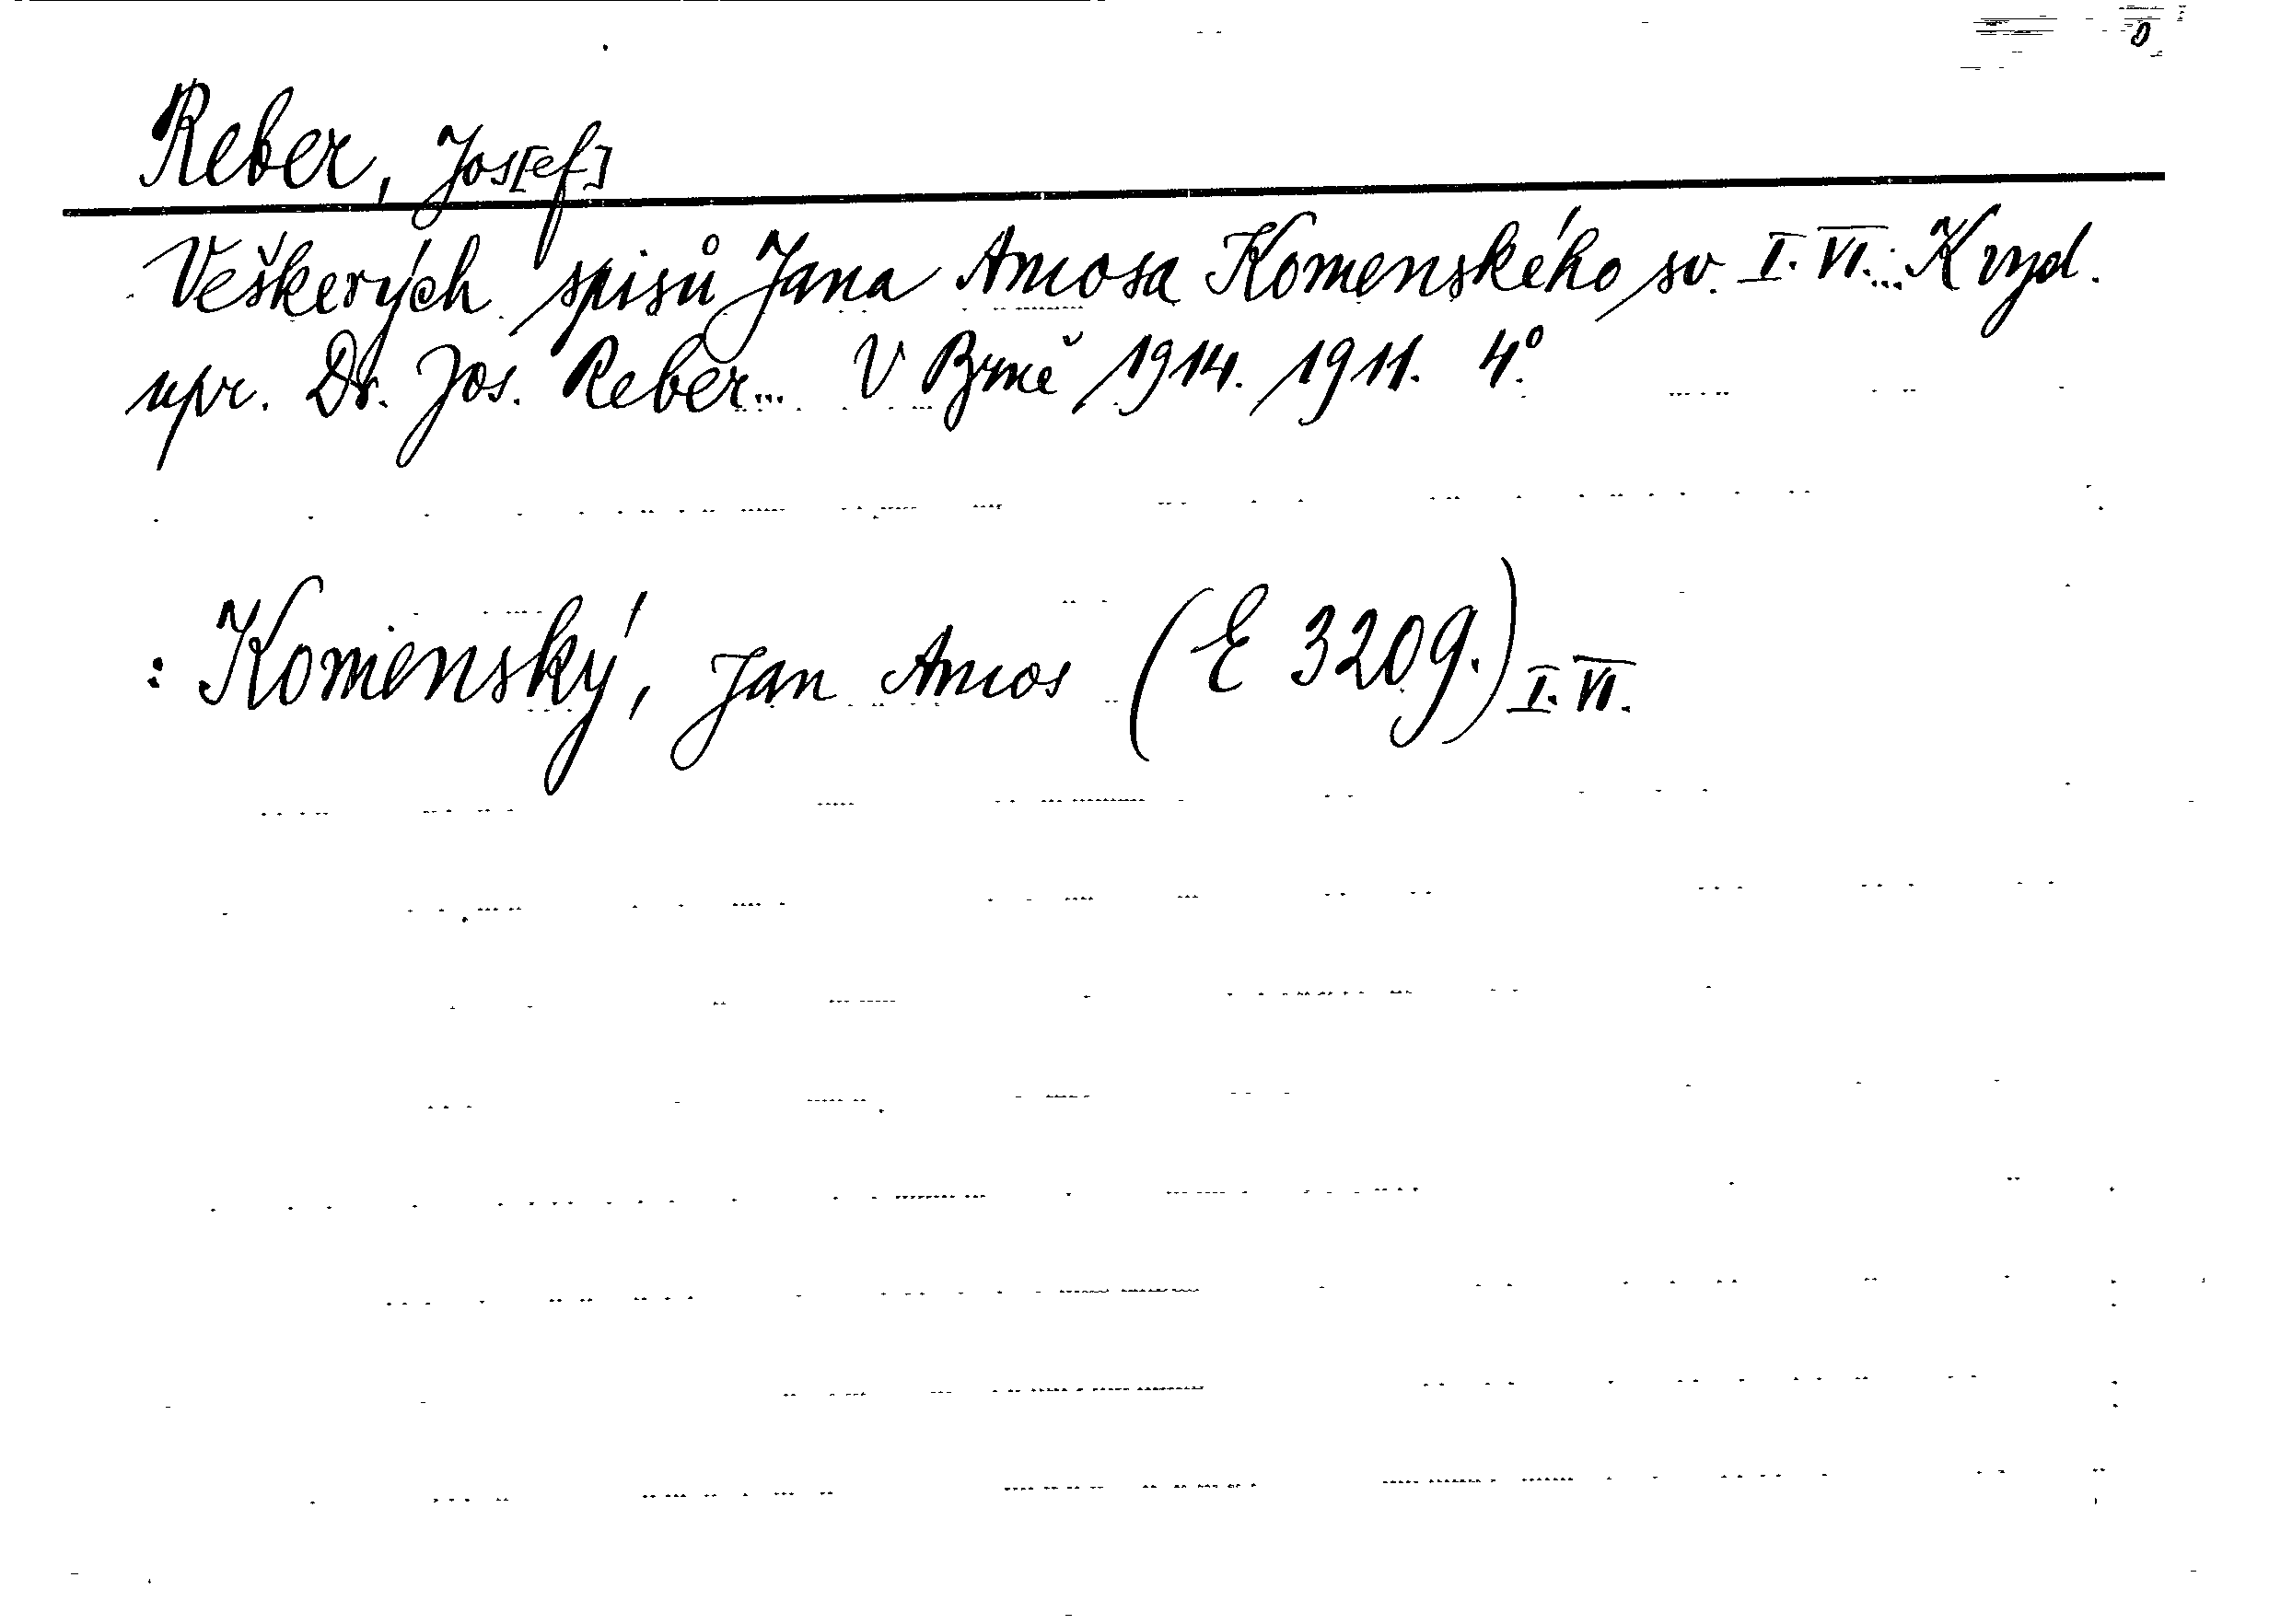 Reber, Jos[ef]
Veškerých spisů Jana Amosa Komenského sv. I. VI... K vyd.
upr. Dr. Jos. Reber... V Brně 1914. 1911. 4°.
: Komenský, Jan Amos (E 320g.) I. VI.